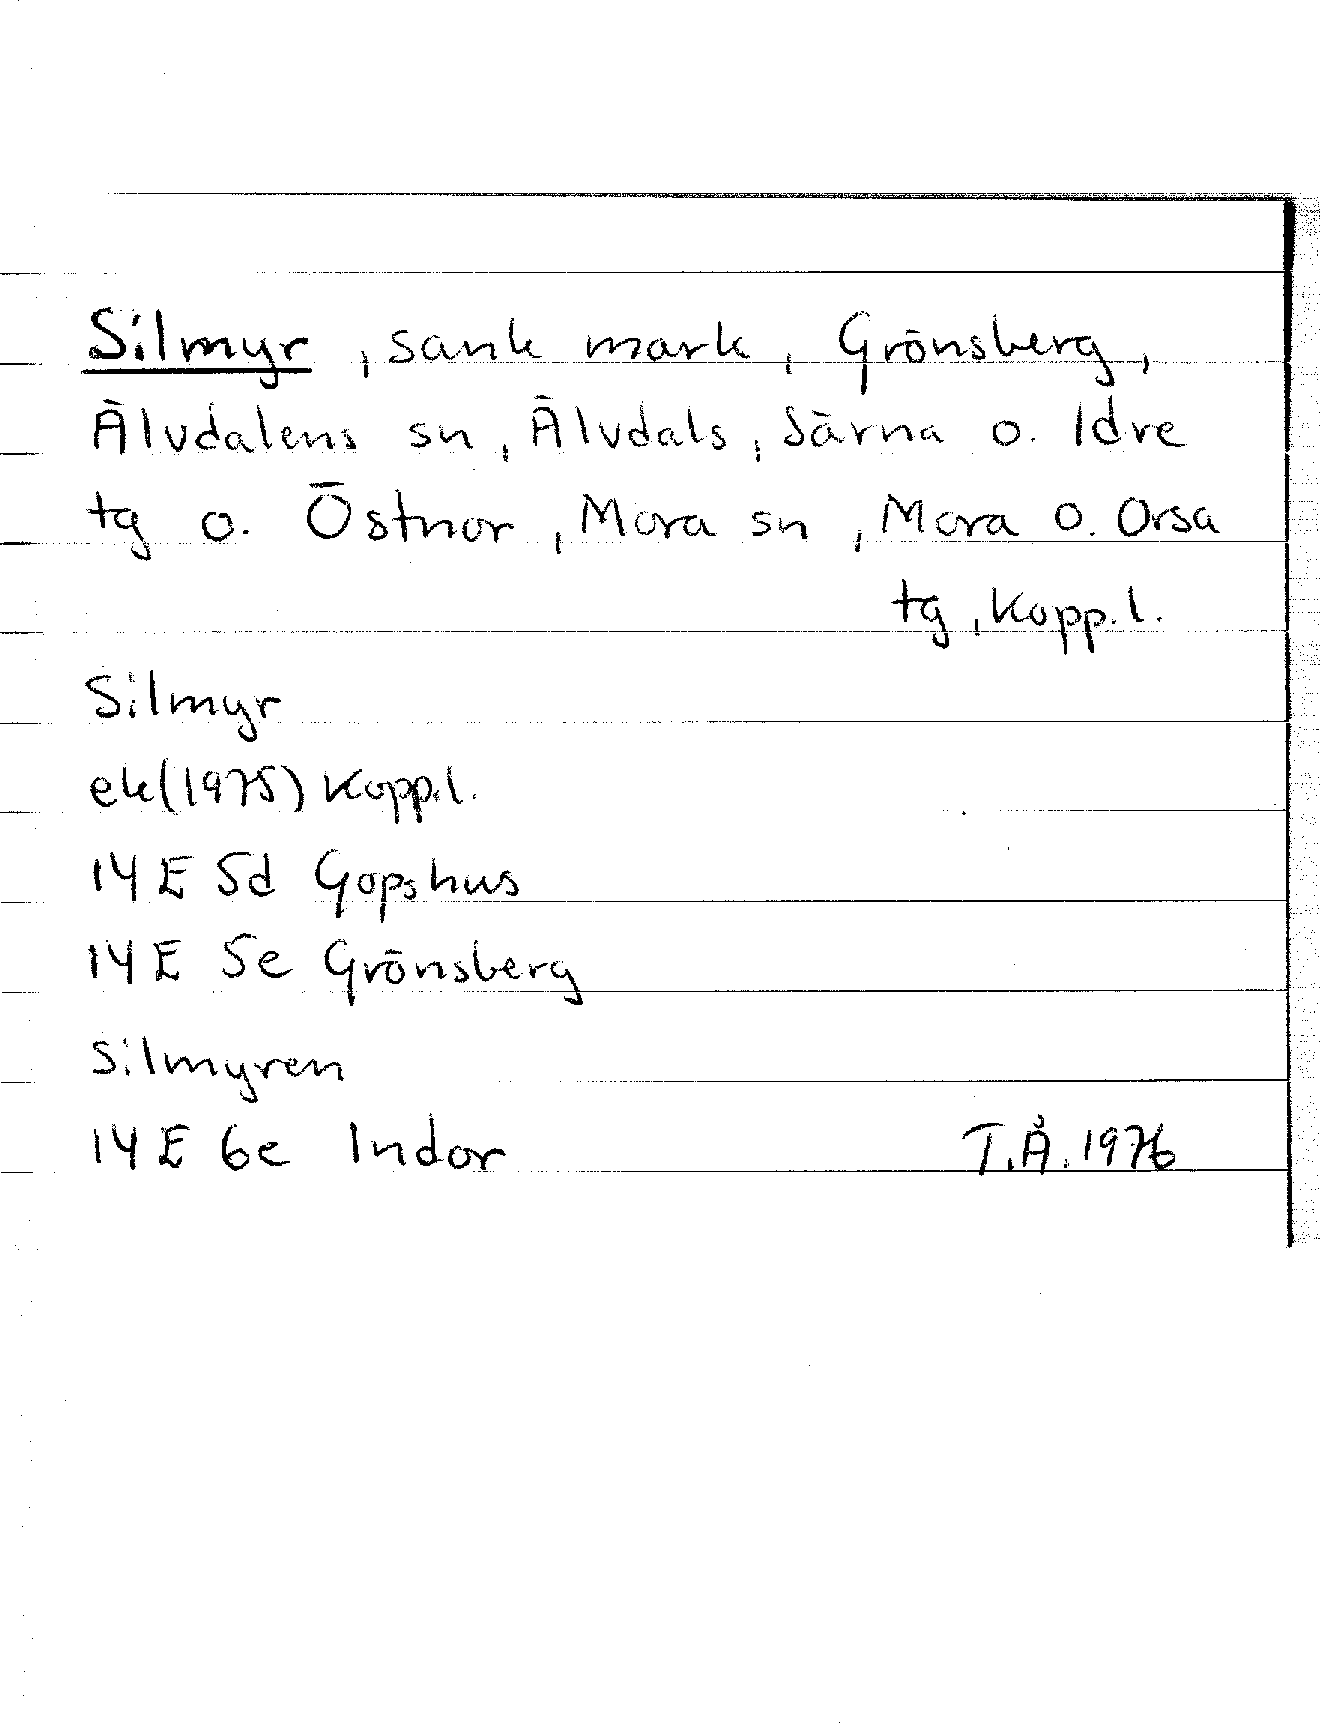 Silmyr, sank mark, Grönsberg,
Älvdalens sn, Älvdals, Särna o. Idre
tg o. Östnor, Mora sn, Mora o. Orsa
tg, Kopp.l.
Silmyr
ek(1975) Kopp.l.
14E 5d Gopshus
14E 5e Grönsberg
Silmyren
14E 6e Indor T.Å. 1976